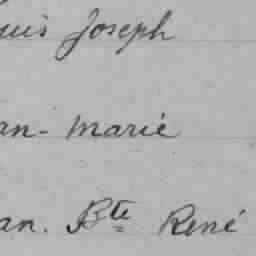 uis Joseph
an-Marie
an. Bte René